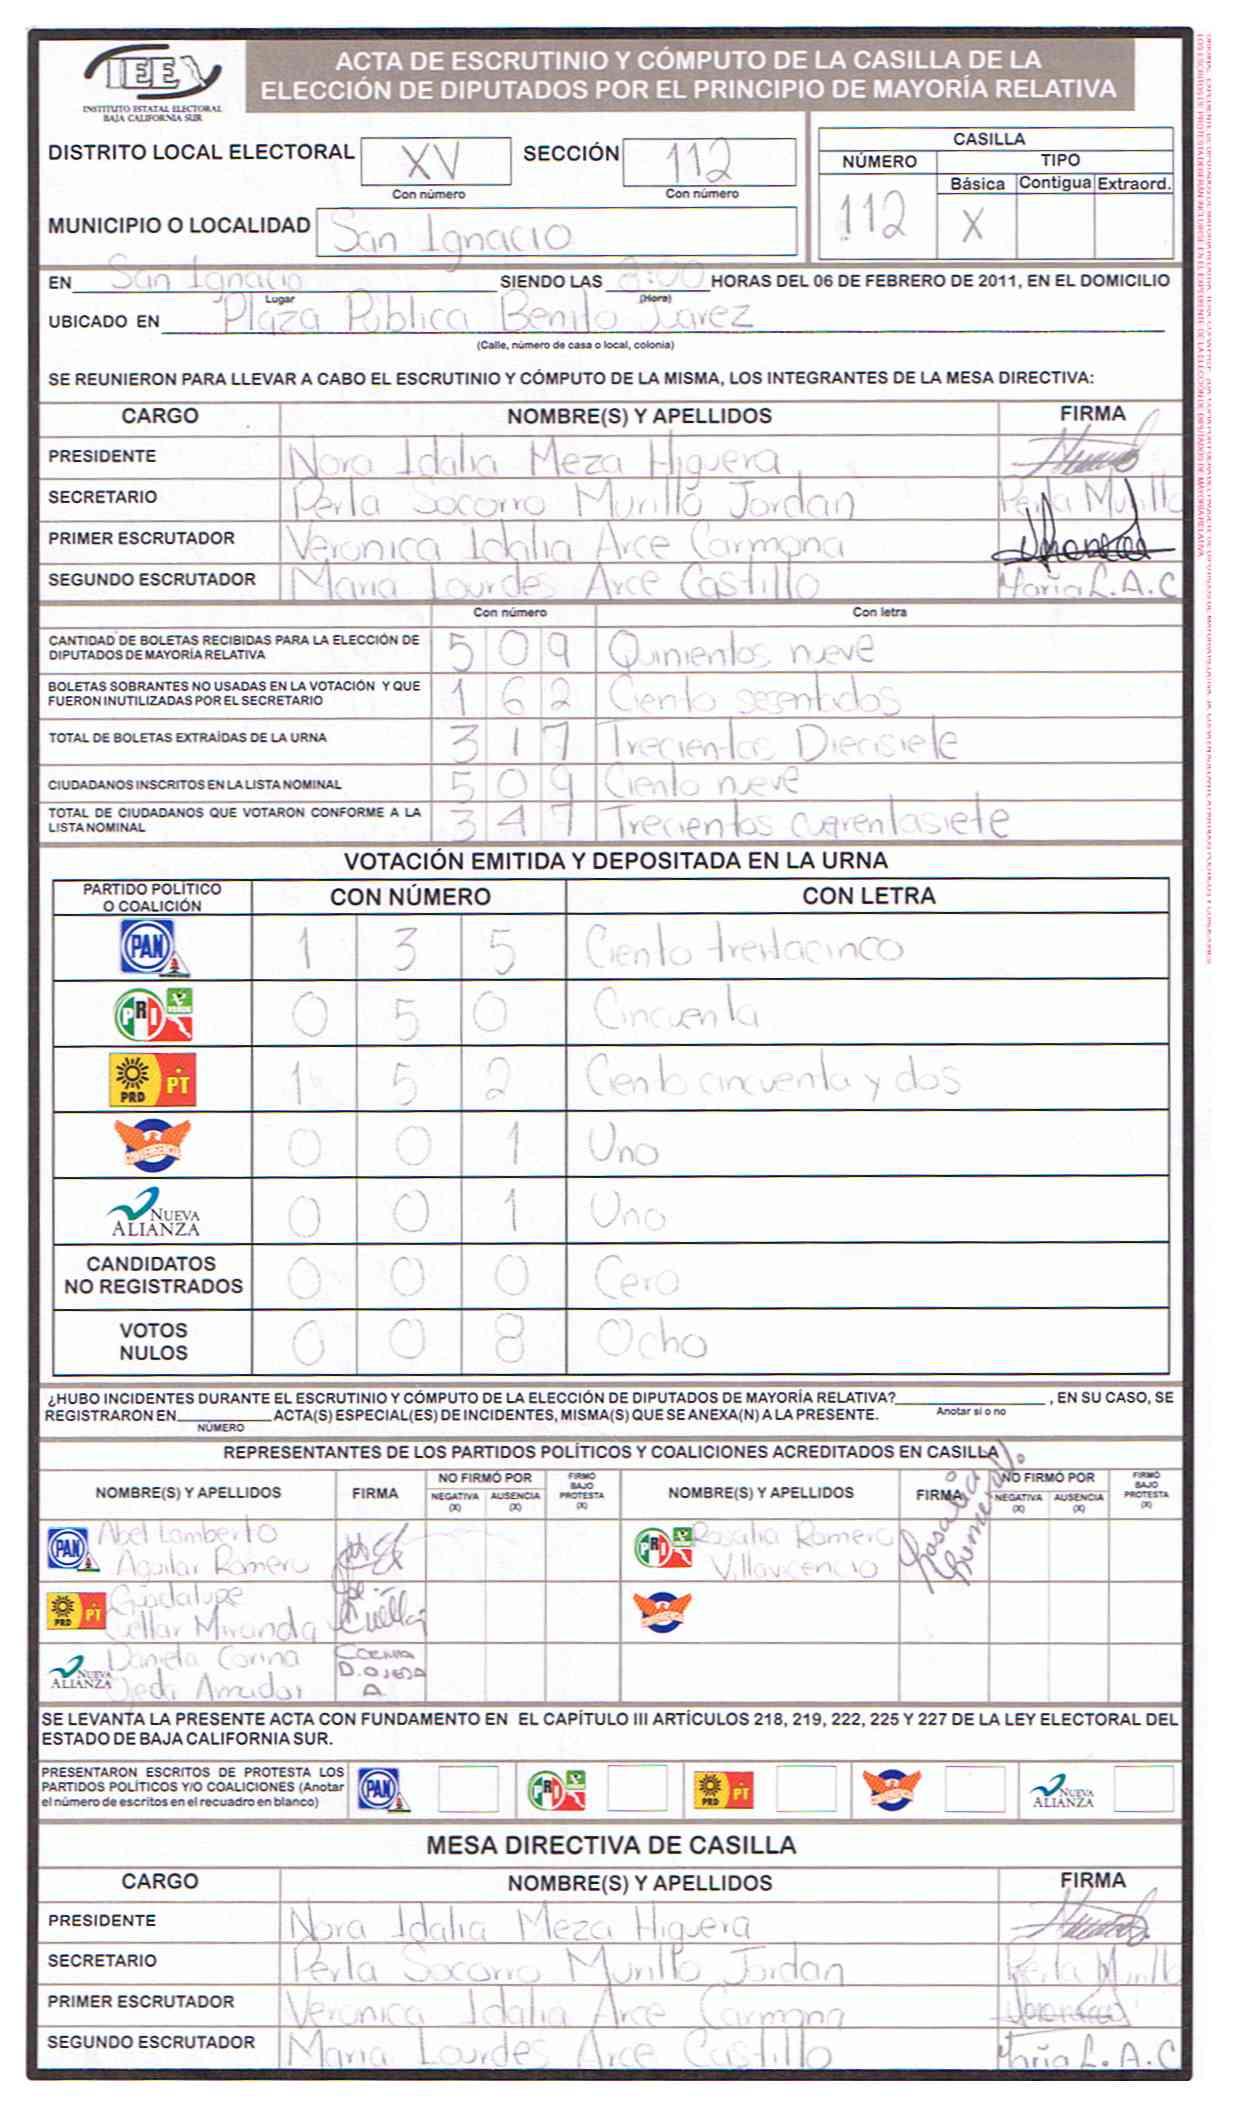 IEE
INSTITUTO ESTATAL ELECTORAL
BAJA CALIFORNIA SUR
ACTA DE ESCRUTINIO Y CÓMPUTO DE LA CASILLA DE LA
ELECCIÓN DE DIPUTADOS POR EL PRINCIPIO DE MAYORÍA RELATIVA
DISTRITO LOCAL ELECTORAL XV SECCIÓN 112
Con número Con número
MUNICIPIO O LOCALIDAD San Ignacio
CASILLA
NÚMERO TIPO
Básica Contigua Extraord.
112 X
EN San Ignacio SIENDO LAS 8:00 HORAS DEL 06 DE FEBRERO DE 2011, EN EL DOMICILIO
Lugar (Hora)
UBICADO EN Plaza Publica Benito Juarez
(Calle, número de casa o local, colonia)
SE REUNIERON PARA LLEVAR A CABO EL ESCRUTINIO Y CÓMPUTO DE LA MISMA, LOS INTEGRANTES DE LA MESA DIRECTIVA:
CARGO NOMBRE(S) Y APELLIDOS FIRMA
PRESIDENTE Nora Idalia Meza Higuera
SECRETARIO Perla Socorro Murillo Jordan Perla Murillo
PRIMER ESCRUTADOR Veronica Idalia Arce Carmona
SEGUNDO ESCRUTADOR Maria Lourdes Arce Castillo Maria L. A. C
Con número Con letra
CANTIDAD DE BOLETAS RECIBIDAS PARA LA ELECCIÓN DE
DIPUTADOS DE MAYORÍA RELATIVA 5 0 9 Quinientos nueve
BOLETAS SOBRANTES NO USADAS EN LA VOTACIÓN Y QUE
FUERON INUTILIZADAS POR EL SECRETARIO 1 6 2 Ciento sesentidos
TOTAL DE BOLETAS EXTRAÍDAS DE LA URNA 3 1 7 Trecientos Diecisiete
CIUDADANOS INSCRITOS EN LA LISTA NOMINAL 5 0 9 Ciento nueve
TOTAL DE CIUDADANOS QUE VOTARON CONFORME A LA
LISTA NOMINAL 3 4 7 Trecientos cuarentasiete
VOTACIÓN EMITIDA Y DEPOSITADA EN LA URNA
PARTIDO POLÍTICO
O COALICIÓN CON NÚMERO CON LETRA
PAN 1 3 5 Ciento treintacinco
PRI VERDE 0 5 0 Cincuenta
PRD PT 1 5 2 Ciento cincuenta y dos
CONVERGENCIA 0 0 1 Uno
NUEVA ALIANZA 0 0 1 Uno
CANDIDATOS
NO REGISTRADOS 0 0 0 Cero
VOTOS
NULOS 0 0 8 Ocho
¿HUBO INCIDENTES DURANTE EL ESCRUTINIO Y CÓMPUTO DE LA ELECCIÓN DE DIPUTADOS DE MAYORÍA RELATIVA? , EN SU CASO, SE
Anotar si o no
REGISTRARON EN ACTA(S) ESPECIAL(ES) DE INCIDENTES, MISMA(S) QUE SE ANEXA(N) A LA PRESENTE.
NÚMERO
REPRESENTANTES DE LOS PARTIDOS POLÍTICOS Y COALICIONES ACREDITADOS EN CASILLA
NOMBRE(S) Y APELLIDOS FIRMA NO FIRMÓ POR NEGATIVA (X) AUSENCIA (X) FIRMÓ BAJO PROTESTA (X) NOMBRE(S) Y APELLIDOS FIRMA NO FIRMÓ POR NEGATIVA (X) AUSENCIA (X) FIRMÓ BAJO PROTESTA (X)
PAN Abel Lamberto PRI Rosalia Romero
Aguilar Romero Villavicencio
PRD PT Guadalupe CONVERGENCIA
Cuellar Miranda
NUEVA ALIANZA Daniela Corina
Ojeda Amador
CORINA
D. OJEDA
A
SE LEVANTA LA PRESENTE ACTA CON FUNDAMENTO EN EL CAPÍTULO III ARTÍCULOS 218, 219, 222, 225 Y 227 DE LA LEY ELECTORAL DEL
ESTADO DE BAJA CALIFORNIA SUR.
PRESENTARON ESCRITOS DE PROTESTA LOS
PARTIDOS POLÍTICOS Y/O COALICIONES (Anotar
el número de escritos en el recuadro en blanco)
PAN PRI PRD PT CONVERGENCIA NUEVA ALIANZA
MESA DIRECTIVA DE CASILLA
CARGO NOMBRE(S) Y APELLIDOS FIRMA
PRESIDENTE Nora Idalia Meza Higuera
SECRETARIO Perla Socorro Murillo Jordan Perla Murillo
PRIMER ESCRUTADOR Veronica Idalia Arce Carmona
SEGUNDO ESCRUTADOR Maria Lourdes Arce Castillo Maria L. A. C